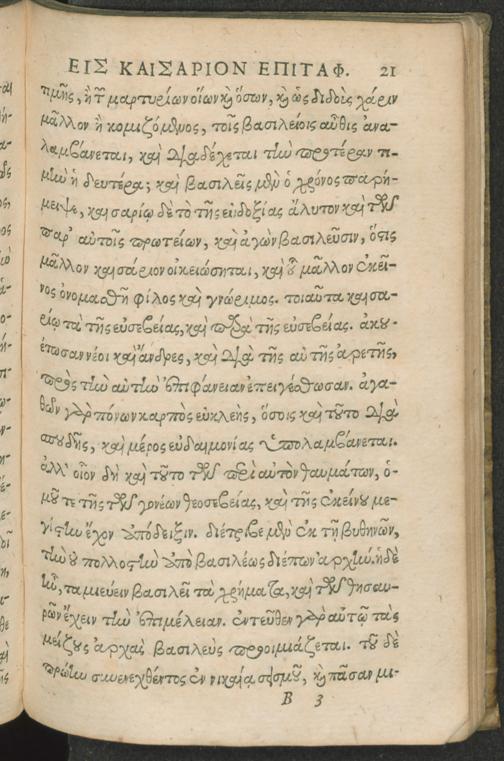 ΕΙΣ ΚΑΙΣΑΡΙΟΝ ΕΠΙΤΑΦ. 21
τιμῆς, ἢ τῶν μαρτυρίων οἵων καὶ ὅσων, καὶ ὡς διδοὺς χάριν
μᾶλλον ἢ κομιζόμενος, τοῖς βασιλείοις αὖθις ἀνα-
λαμβάνεται, καὶ διαδέχεται τὴν προτέραν τι-
μὴν ἡ δευτέρα; καὶ βασιλεῖς μὲν ὁ χρόνος παρή-
μειψε, καισαρίῳ δὲ τὸ τῆς εὐδοξίας ἄλυτον καὶ τῶν
παρ' αὐτοῖς πρωτείων, καὶ ἀγὼν βασιλεῦσιν, ὅστις
μᾶλλον καισάριον οἰκειώσηται, καὶ οὗ μᾶλλον ἐκεῖ-
νος ὀνομασθῇ φίλος καὶ γνώριμος. τοιαῦτα καισα-
ρίῳ τὰ τῆς εὐσεβείας, καὶ παρὰ τῆς εὐσεβείας. ἀκου-
έτωσαν νέοι καὶ ἄνδρες, καὶ διὰ τῆς αὐτῆς ἀρετῆς,
πρὸς τὴν αὐτὴν ἐπιφάνειαν ἐπειγέσθωσαν. ἀγα-
θῶν γὰρ πόνων καρπὸς εὐκλεής, ὅσοις καὶ τοῦτο διὰ
σπουδῆς, καὶ μέρος εὐδαιμονίας ὑπολαμβάνεται.
ἀλλ' οἷον δὴ καὶ τοῦτο τῶν περὶ αὐτὸν θαυμάτων, ὁ-
μοῦ τε τῆς τῶν γονέων θεοσεβείας, καὶ τῆς ἐκείνου με-
γίστην ἔχον ἀπόδειξιν. διέτριβε μὲν ἐν τῇ βυθηνῶν,
τὴν οὐ πολλοστὴν ἀπὸ βασιλέως διέπων ἀρχήν. ἡ δὲ
ἦν, ταμιεύειν βασιλεῖ τὰ χρήματα, καὶ τῶν θησαυ-
ρῶν ἔχειν τὴν ἐπιμέλειαν. ἐντεῦθεν γὰρ αὐτῷ τὰς
μείζους ἀρχὰς βασιλεὺς προοιμιάζεται. τοῦ δὲ
πρώην συνενεχθέντος ἐν νικαίᾳ σεισμοῦ, καὶ πᾶσαν μι-
B 3